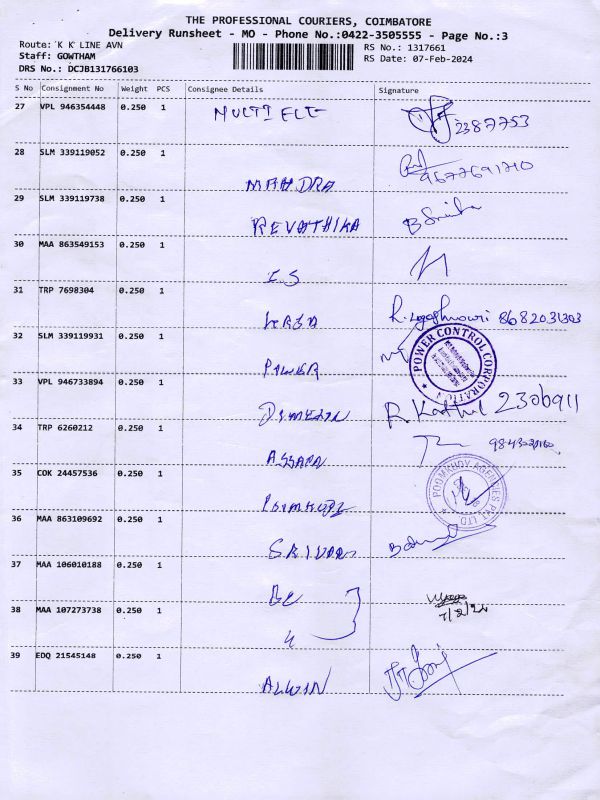 THE PROFESSIONAL COURIERS, COIMBATORE
Delivery Runsheet - MO - Phone No.:0422-3505555 - Page No.:3
Route: K K LINE AVN
RS No.: 1317661
Staff: GOWTHAM
RS Date: 07-Feb-2024
DRS No.: DCJB131766103
S No Consignment No Weight PCS Consignee Details Signature
27 VPL 946354448 0.250 1 MULTI ELE 2387753
28 SLM 339119052 0.250 1 MAHDRA 9677691710
29 SLM 339119738 0.250 1 REVATHIKA
30 MAA 863549153 0.250 1
31 TRP 7698304 0.250 1 8682031303
32 SLM 339119931 0.250 1 POWER
POWER CONTROL CORPORATION
33 VPL 946733894 0.250 1 R. 2306911
34 TRP 6260212 0.250 1
35 COK 24457536 0.250 1
POOMKHOY AGENCIES PVT LTD
36 MAA 863109692 0.250 1
37 MAA 106010188 0.250 1
38 MAA 107273738 0.250 1 7/2/24
39 EDQ 21545148 0.250 1 ALWIN